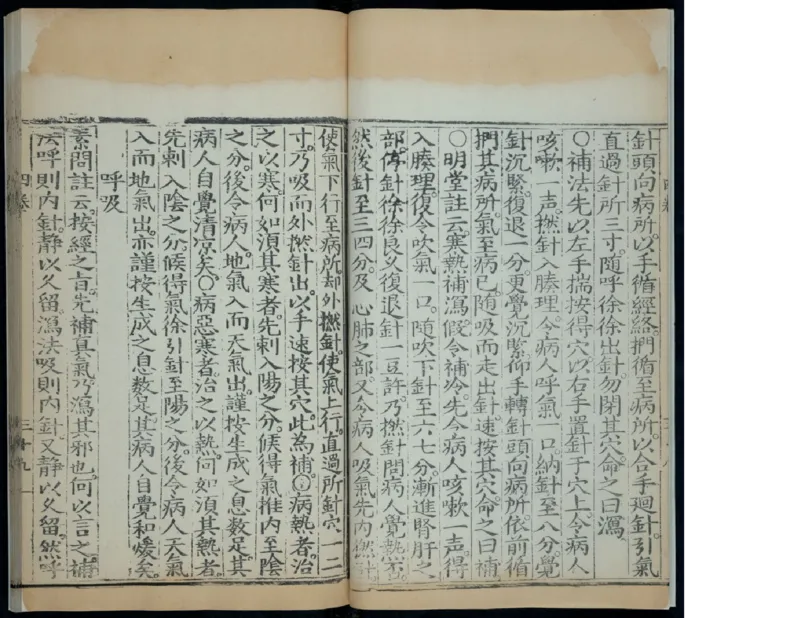 針頭向病所以手循經絡捫循至病所以合手廻針引氣
直過針所三寸隨呼徐徐出針勿閉其穴命之曰瀉
○補法先以左手揣按得穴以右手置針于穴上令病人
咳嗽一声撚針入腠理令病人呼氣一口納針至八分覺
針沉緊復退一分更覺沉緊仰手轉針頭向病所依前循
捫其病所氣至病已隨吸而走出針速按其穴命之曰補
○明堂註云寒熱補瀉假令補冷先令病人咳嗽一声得
入腠理復令吹氣一口隨吹下針至六七分漸進腎肝之
部停針徐徐良乆復退針一豆許乃撚針問病人覺熱否
然後針至三四分及心肺之部又令病人吸氣先內撚針
使氣下行至病所却外撚針使氣上行直過所針穴一二
寸乃吸而外撚針出以手速按其穴此為補○病熱者治
之以寒何如湏其寒者先刺入陽之分候得氣推內至隂
之分後令病人地氣入而天氣出謹按生成之息数足其
病人自覺清凉矣○病惡寒者治之以熱何如湏其熱者
先刺入陰之分候得氣徐引針至陽之分後令病人天氣
入而地氣出亦謹按生成之息数足其病人自覺和煖矣
呼吸
素問註云按經之旨先補真氣乃瀉其邪也何以言之補
法呼則内針静以乆留瀉法吸則内針又静以乆留然呼
四卷
三十九